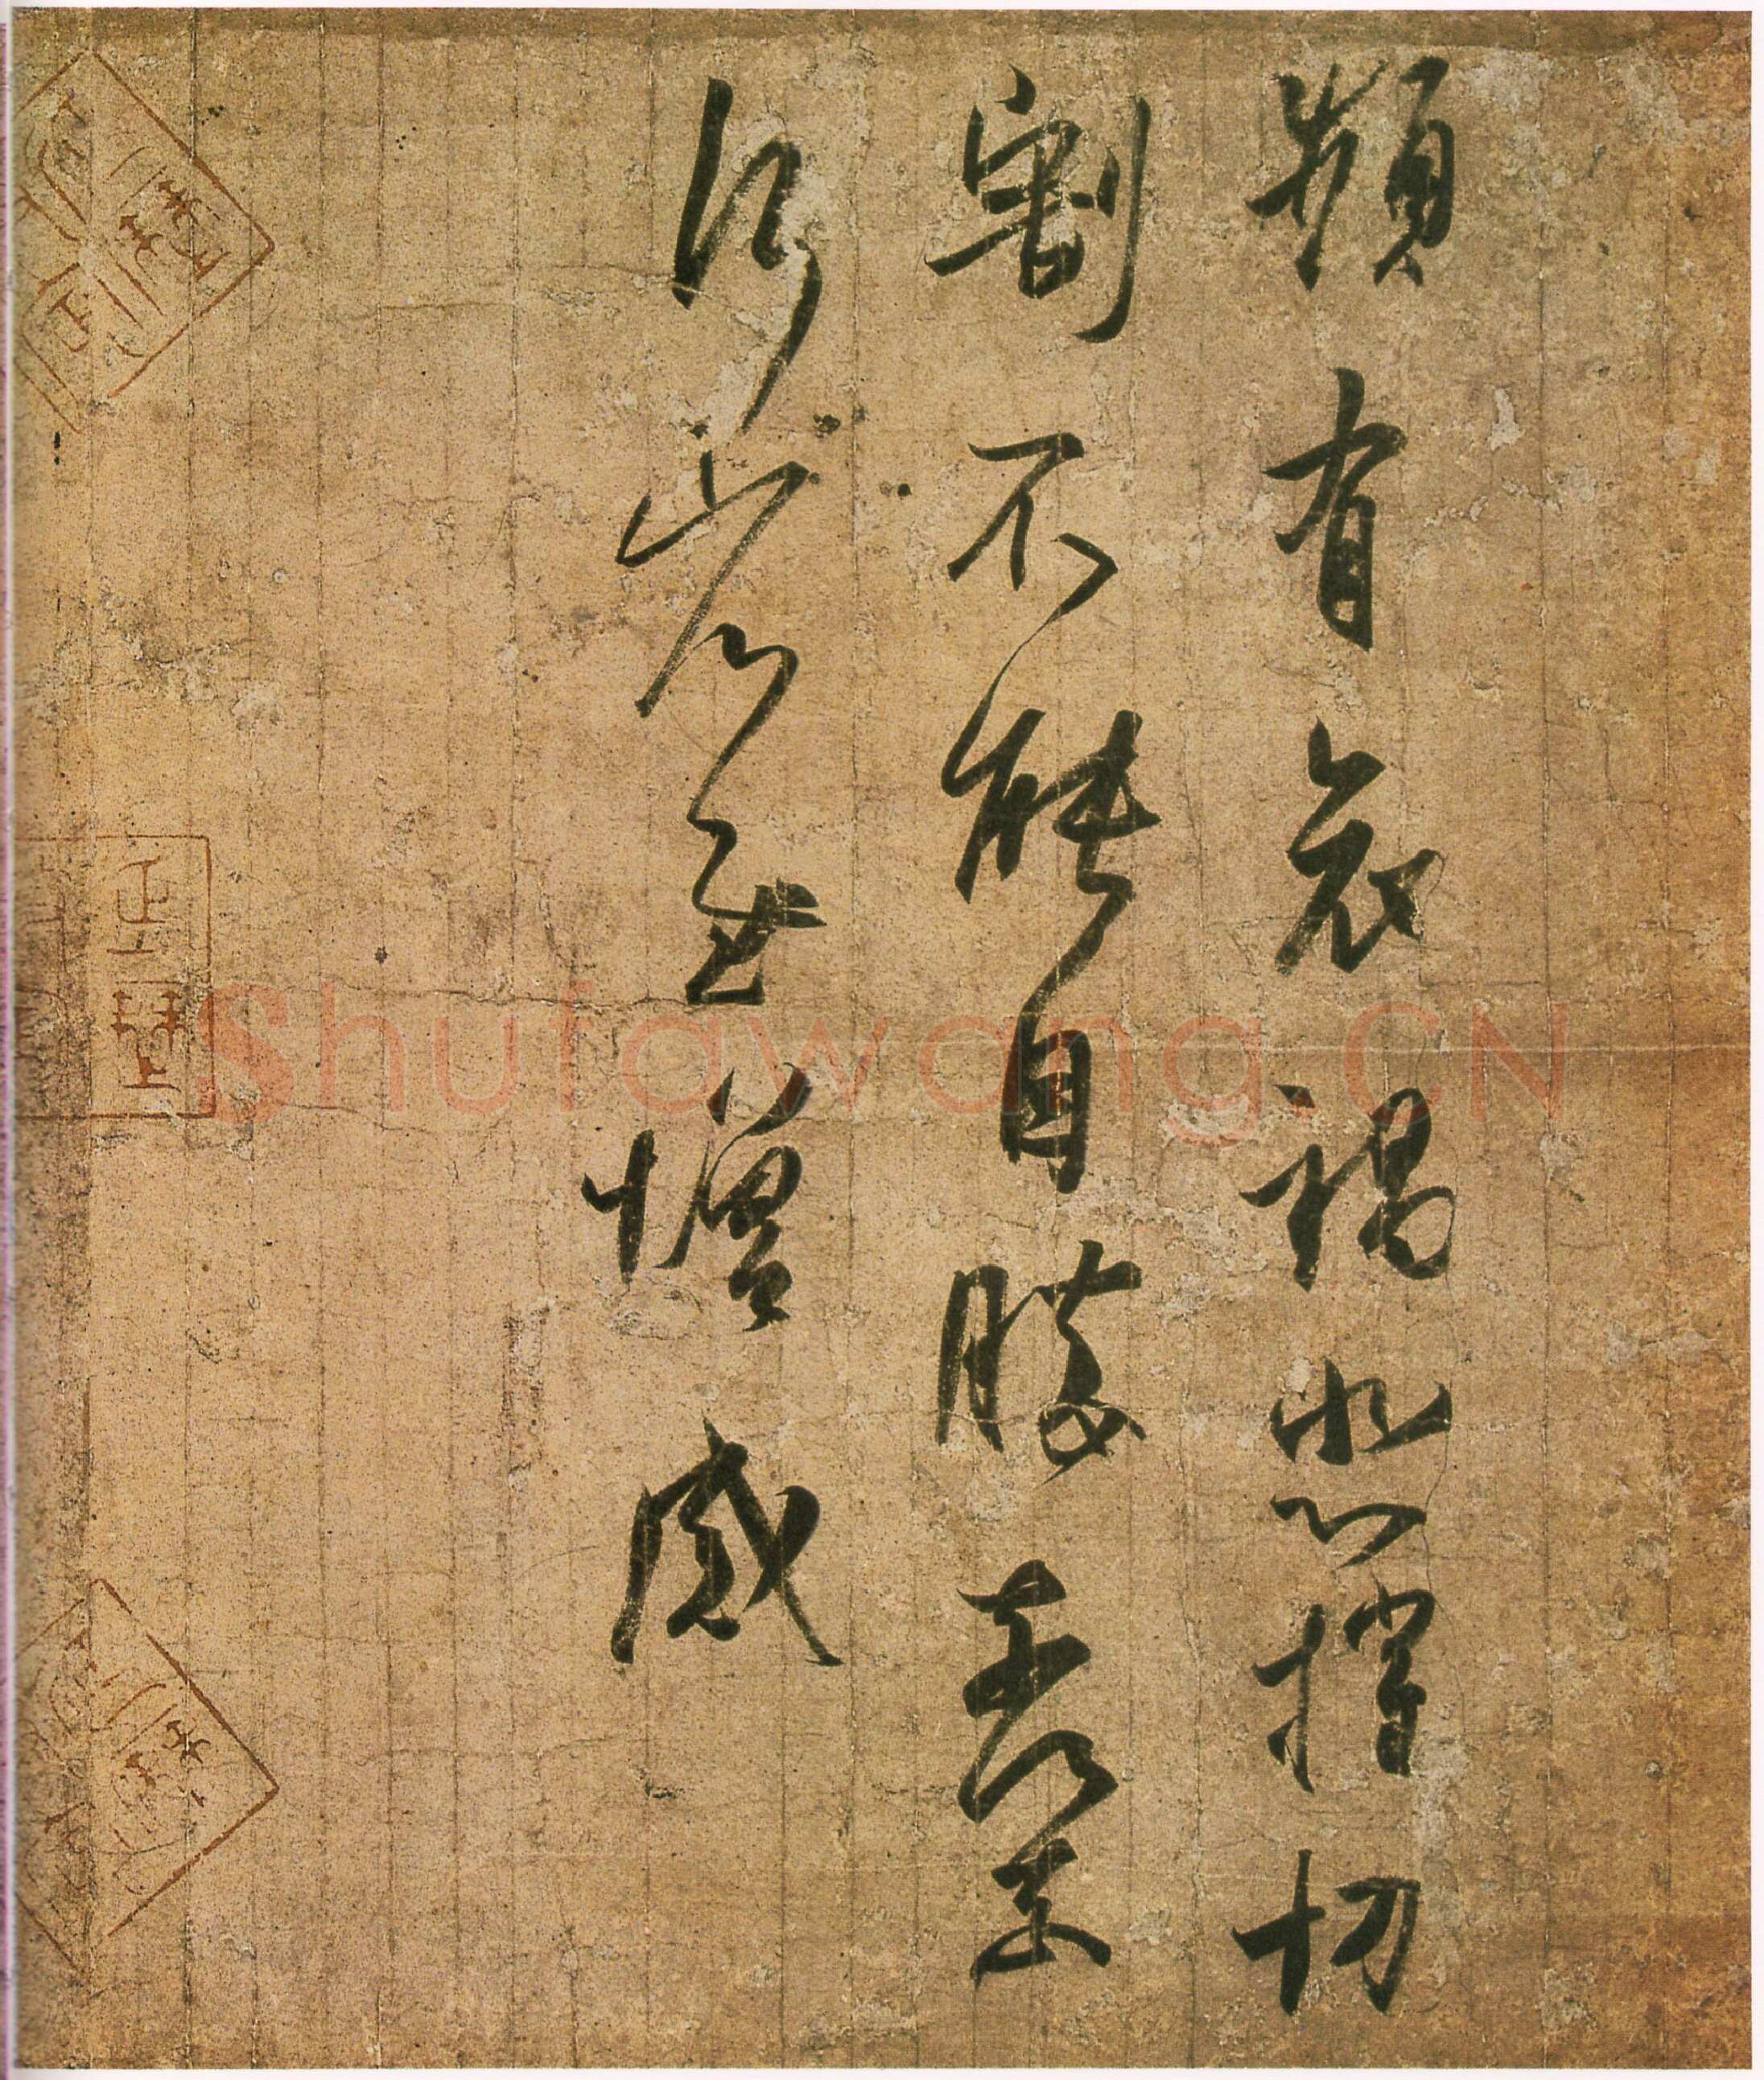 頻有哀禍悲摧切
割不能自勝奈何奈
何省慰增感
Shufawang.CN